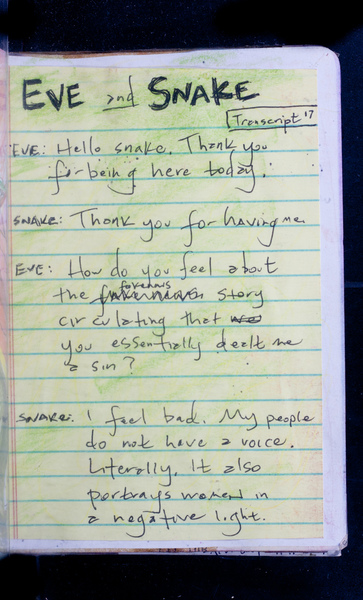 EVE and SNAKE
Transcript 17
EVE: Hello snake. Thank you
for being here today.
SNAKE: Thank you for having me.
EVE: How do you feel about
the story
circulating that
you essentially dealt me
a sin?
SNAKE: I feel bad. My people
do not have a voice.
Literally. It also
portrays women in
a negative light.